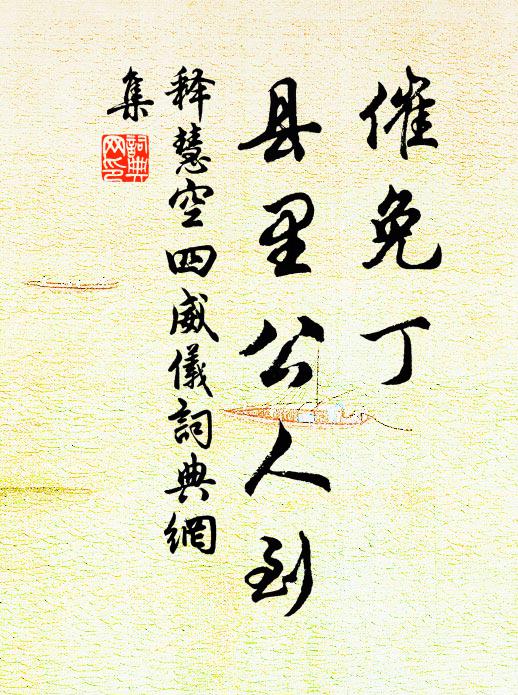 催免丁
县里公人到
释慧空四威儀詞典網
集
詞典网印